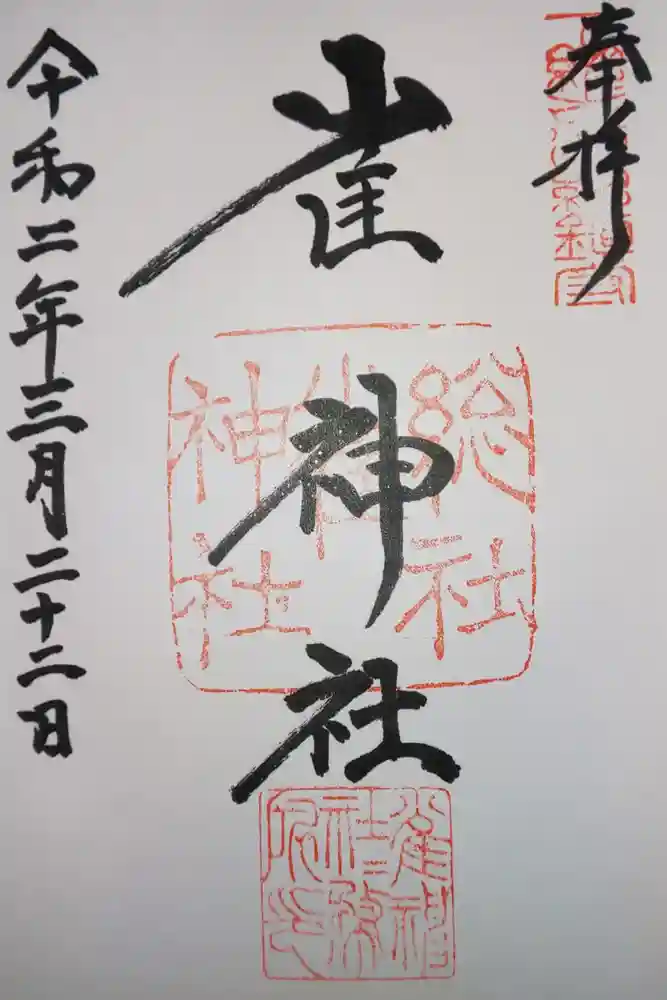 奉拝
雀神社
令和二年三月二十二日
総社
雀
神社